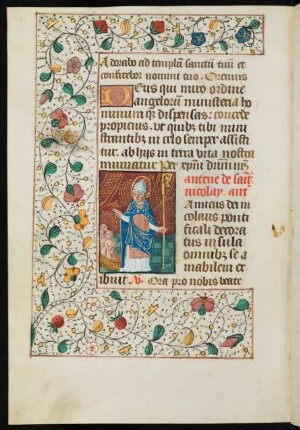 Adorabo ad templu sanctu tuu et
confitebor nomini tuo. Oremus
Deus qui miro ordine
angeloru ministeria ho
minum q dispensas: concede
propicius. ut quibz tibi mini
strantibz in celo semper assisti
tur. ab hiis in terra vita nostra
muniatur Per xpm dnm
antene de sait
nicolay. ant
Amicus dei ni
colaus ponti
ficali decora
tus infula
omnibz se a
mabilem ex
ibuit. V. Ora pro nobis beate